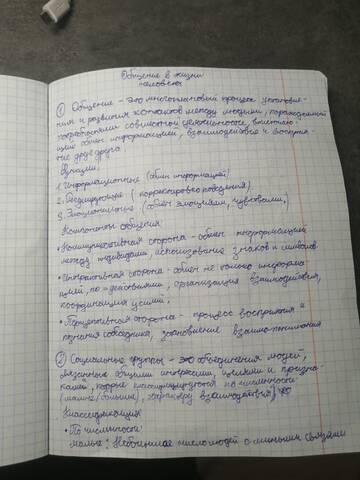 Общение в жизни
человека
① Общение - это многоплановый процесс установле-
ния и развития контактов между людьми, порождаемый
потребностями совместной деятельности, включаю-
щий обмен информацией, взаимодействие и восприя-
тие друг друга.
Функции:
1. Информационные (обмен информацией)
2. Регулирующие (корректировка поведения)
3. Эмоциональные (обмен эмоциями, чувствами)
Компоненты общения:
• Коммуникативная сторона - обмен информацией
между индивидами, использование знаков и символов
• Интерактивная сторона - обмен не только информа-
цией, но и действиями, организация взаимодействия,
координация усилий;
• Перцептивная сторона - процесс восприятия и
познания собеседника, установление взаимо-понимания
② Социальные группы - это объединения людей,
связанные общими интересами, целями и призна-
ками, которые классифицируются по численности
(малые/большие), характеру взаимодействия
Классификация:
• По численности:
малые: Небольшое число людей с личными связями